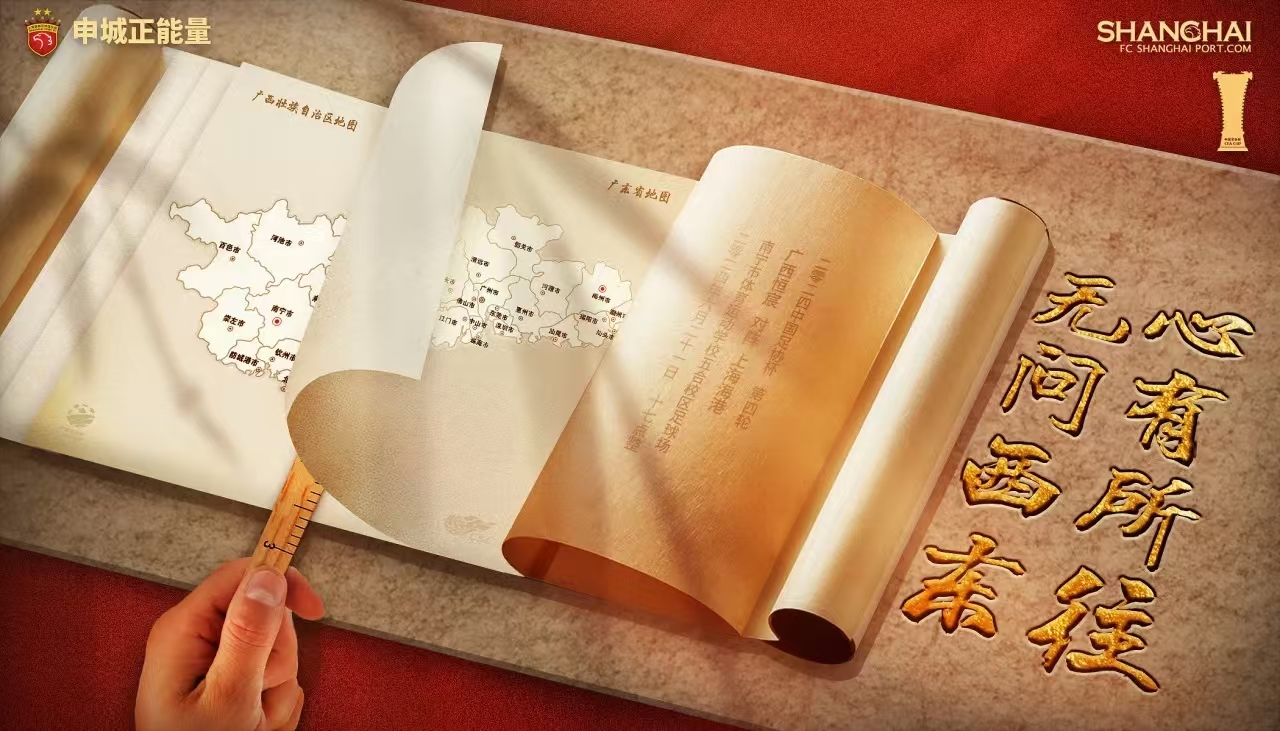 申城正能量
SHANGHAI
FC SHANGHAI PORT.COM
CFA CUP
广西壮族自治区地图
百色市
河池市
崇左市
南宁市
防城港市
钦州市
广东省地图
韶关市
清远市
广州市
河源市
梅州市
佛山市
东莞市
惠州市
江门市
中山市
深圳市
汕尾市
揭阳市
珠海市
二零二四中国足协杯 第四轮
广西恒宸 对阵 上海海港
南宁市体育运动学校五合校区足球场
3
心有所往
无问西东